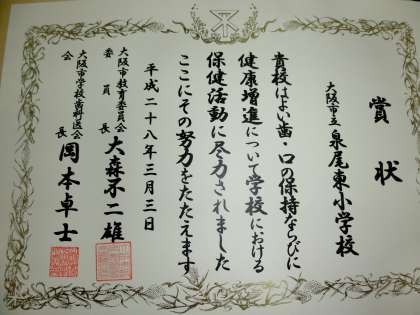 賞状
大阪市立泉尾東小学校
貴校はよい歯・口の保持ならびに
健康増進について学校における
保健活動に尽力されました
ここにその努力をたたえます
平成二十八年三月三日
大阪市教育委員会
委員長 大森不二雄
大阪市学校歯科医会
会長 岡本卓士